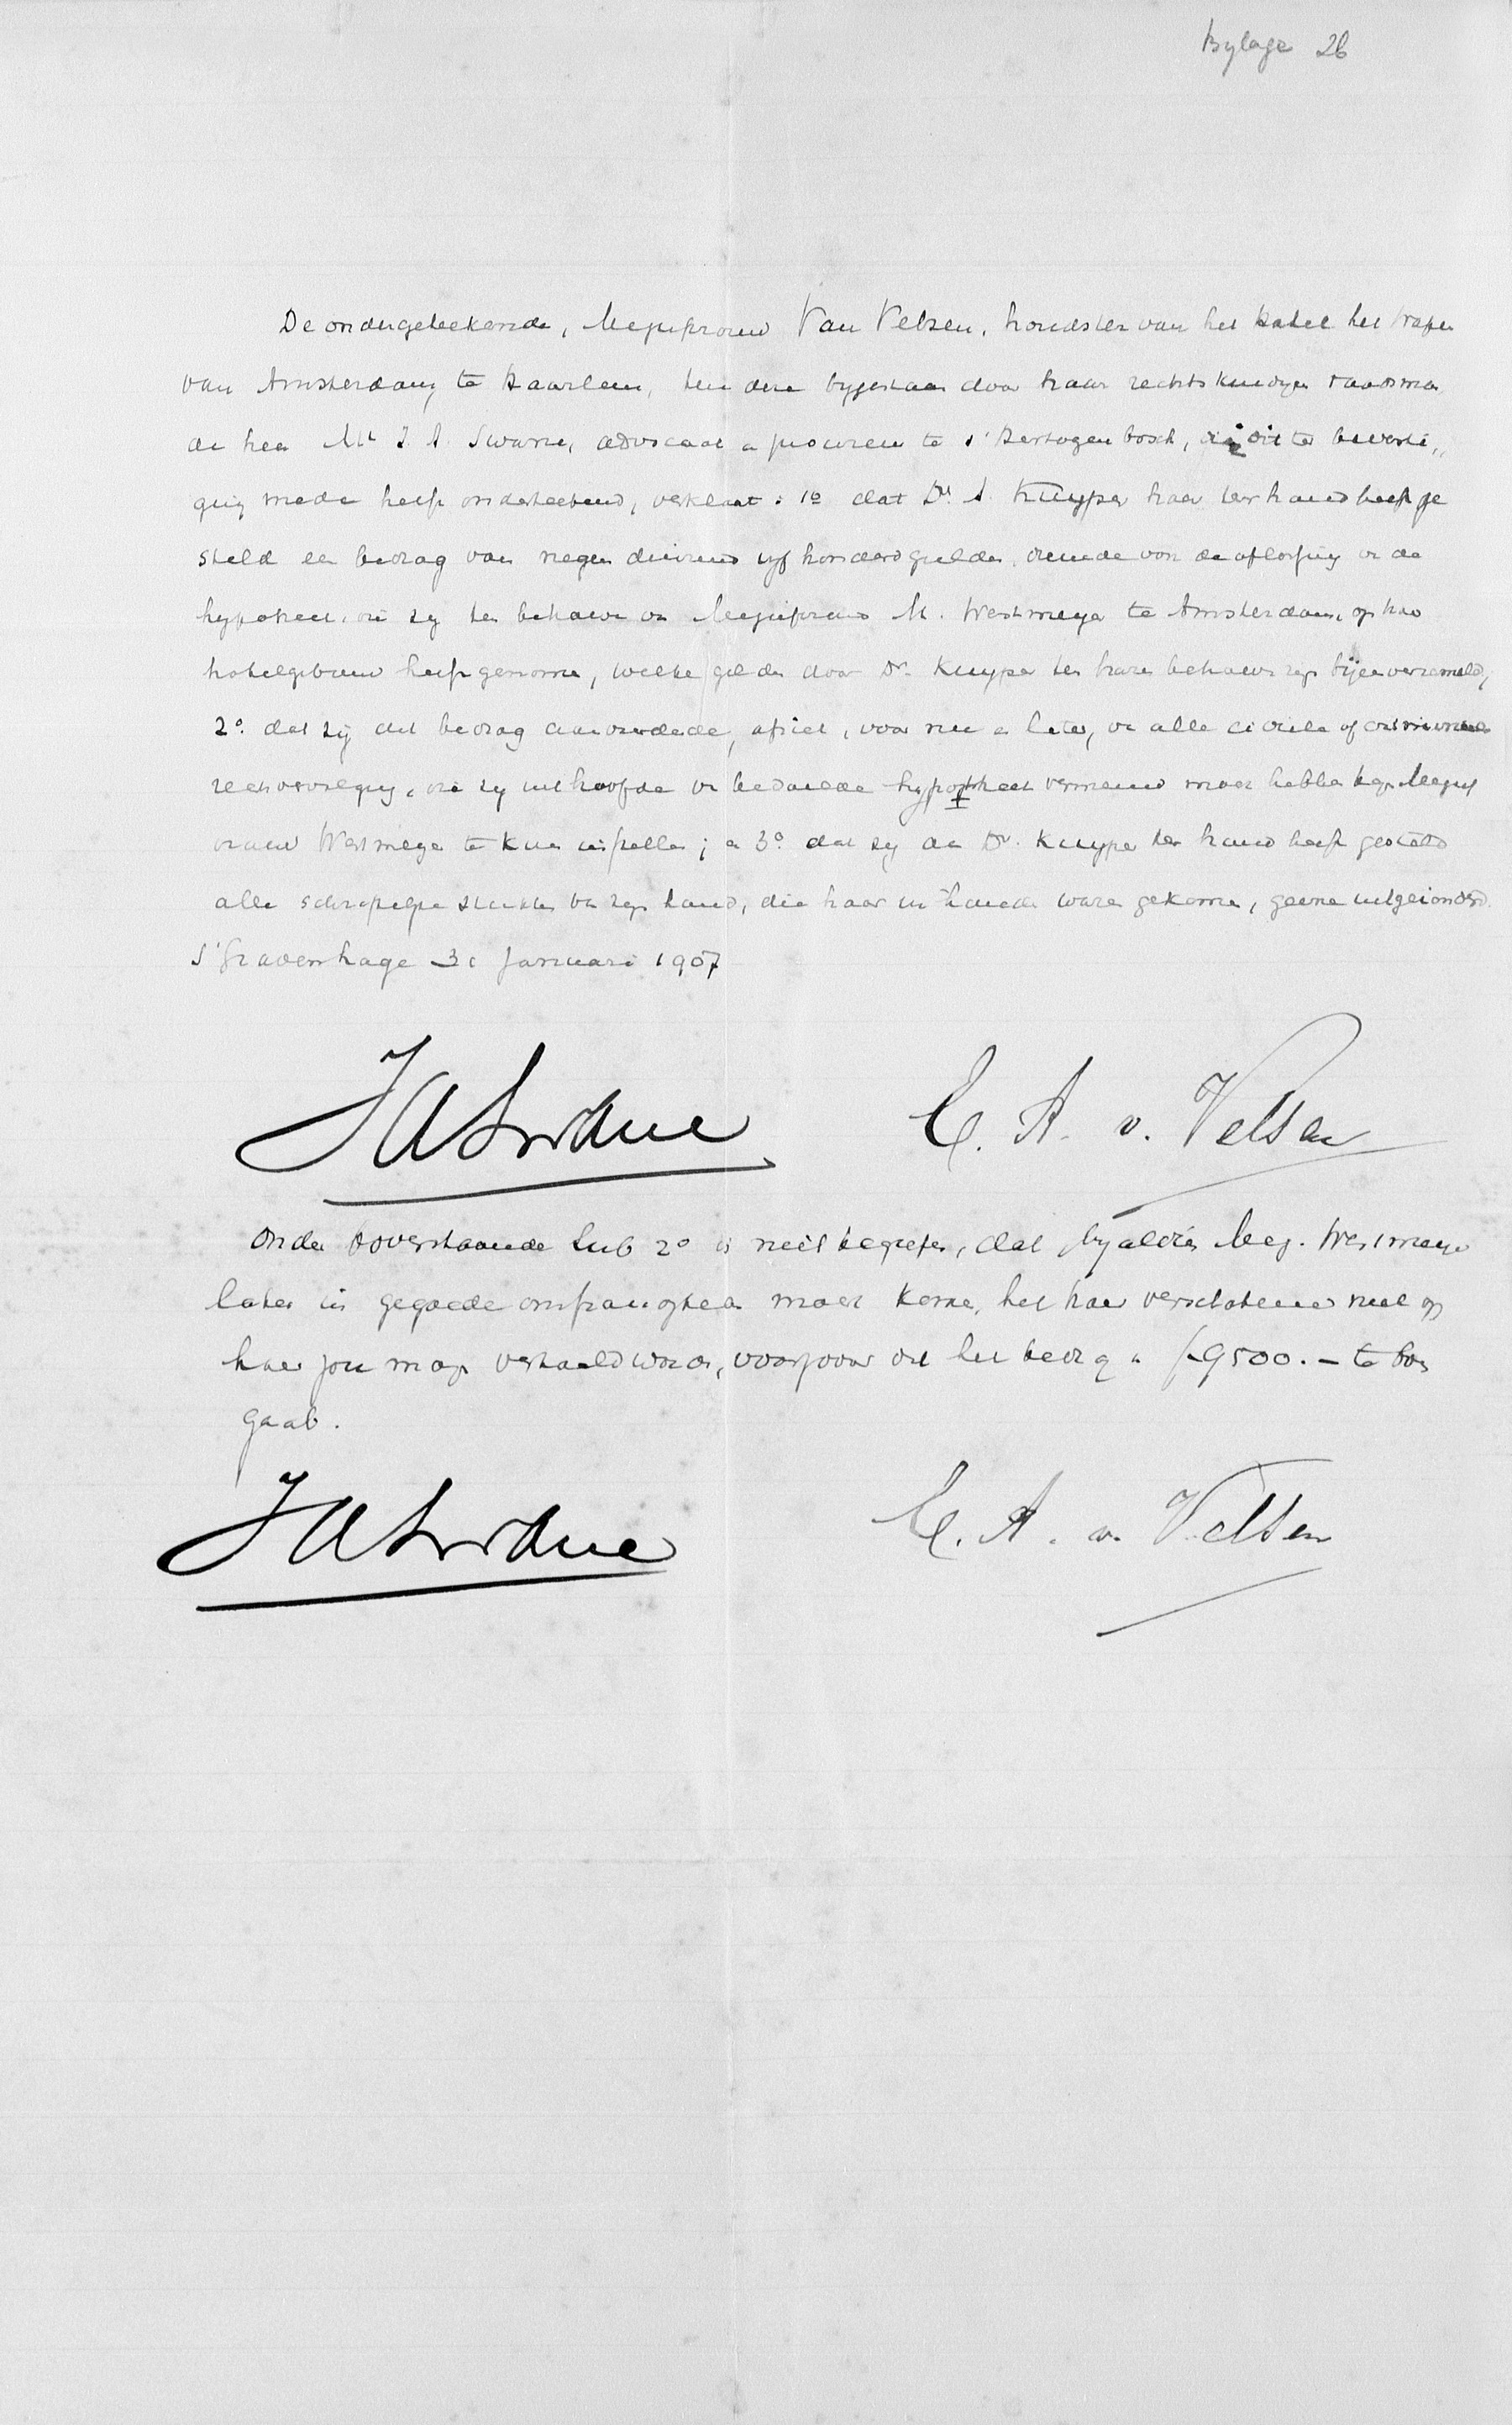 Bylage 26
De ondergeteekende, Mejufvrouw Van Velzen, houdster van het Hotel het Wapen
van Amsterdam, te Haarlem, ten deze bygestaan door haar rechtskundigen raadsman
de heer Mr. J. A. Swane, advocaat en procureur te s'Hertogenbosch, die dit ter bevesti„
ging mede heeft onderteekend, verklaart: 1o dat Dr. A. Kuyper haar ter hand heeft ge
steld een bedrag van negen duizend vyf honderd gulden, dienende voor de aflossing van de
hypotheek, die zy ten behoeve van Mejufvrouw M. Westmeyer te Amsterdam, op haar
hotelgebouw heeft genomen, welke gelden door Dr. Kuyper ten haren behoeve zyn bijeenverzameld,
2o. dat zij dit bedrag aanvaardende, afziet, voor nu en later, van alle civiele of crimineele
rechtsvervolging, die zy uit hoofde van bedoelde hypotheek vermeend mocht hebben tegen Mejuf
vrouw Westmeyer te kunnen instellen; en 3o. dat zy aan Dr. Kuyper ter hand heeft gesteld
alle schriftelyke stukken van zyn hand, die haar in handen waren gekomen, geene uitgezonderd.
s'Gravenhage 31 Januari 1907
J A Swane
E. A. v. Velsen
Onder bovenstaande sub 2o is niet begrepen, dat byaldien Mej. Westmeyer
later in gegoede omstandigheden mocht komen, het haar verschotene niet op
haer zou mogen verhaald worden, voorzoover dit het bedrag van f 9500.- te boven
gaat.
J A Swane
E. A. v. Velsen